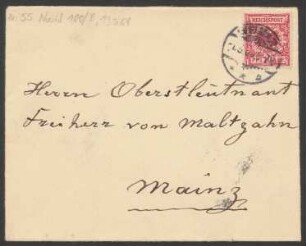 55 Nachl
REICHSPOST
Herrn Oberstleutnant
Freiherr von Maltzahn
Mainz